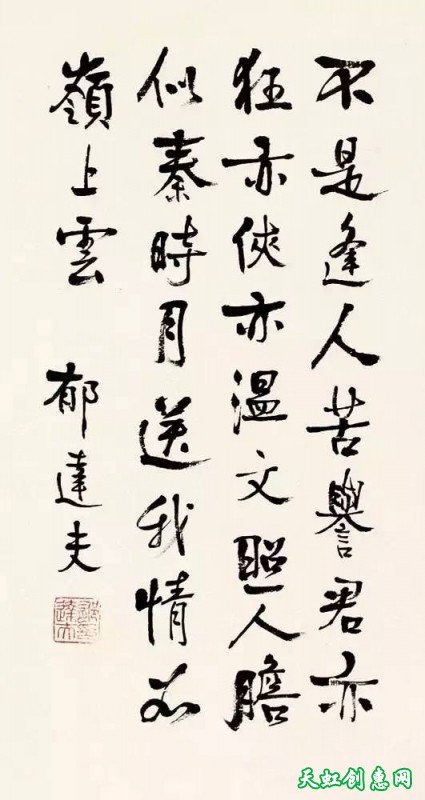 不是逢人苦譽君亦
狂亦俠亦溫文照人膽
似秦時月送我情如
嶺上雲
郁達夫
天虹创意网